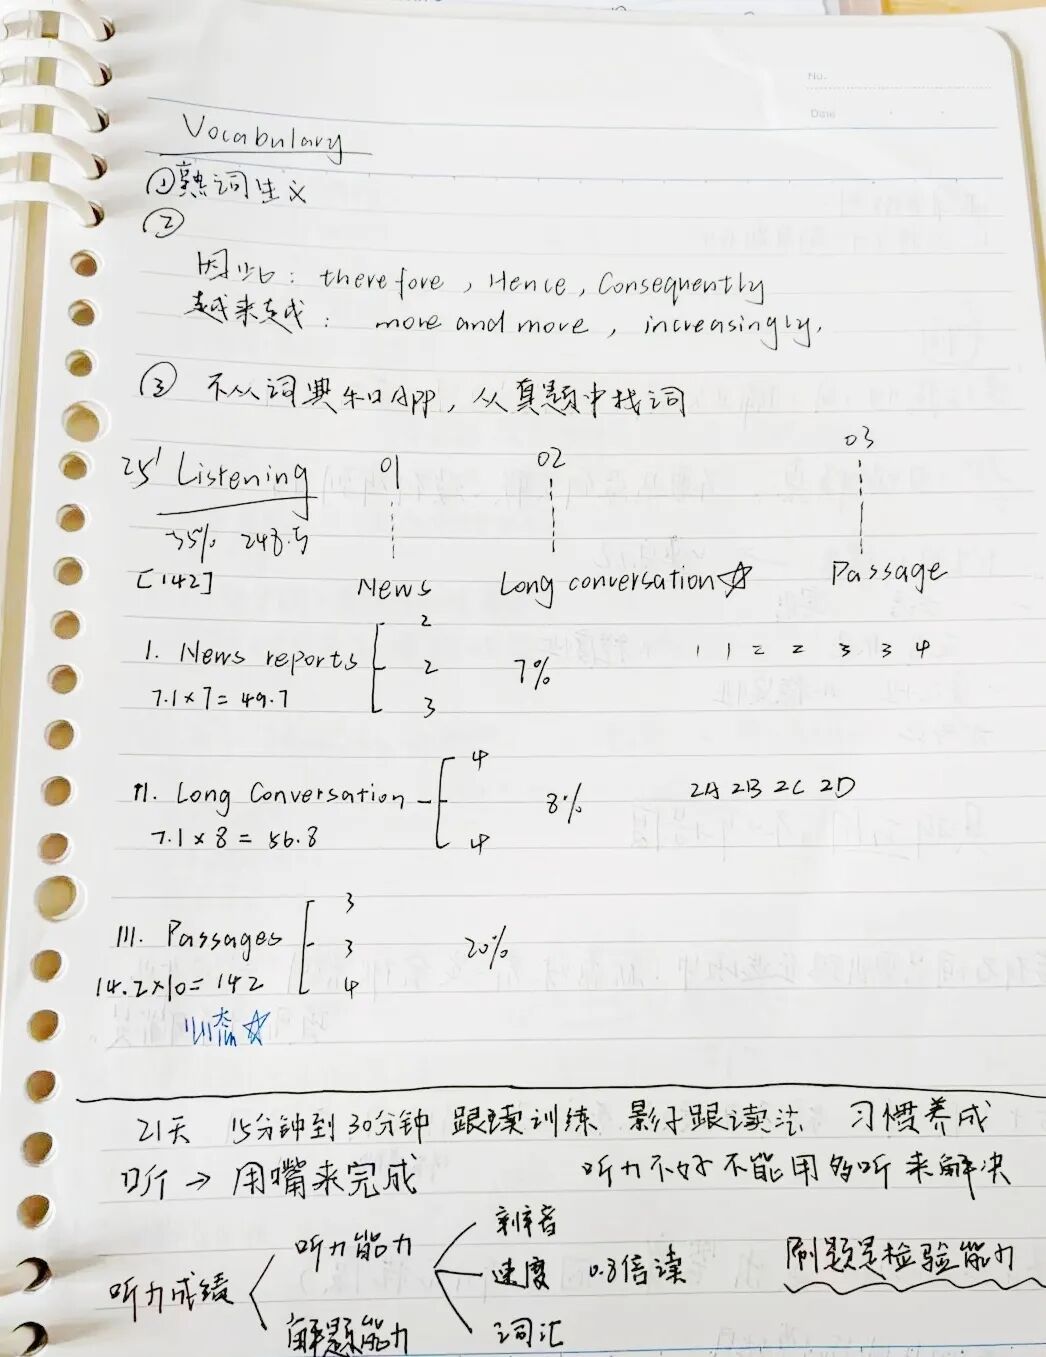 No.
Date
Vocabulary
①熟词生义
②
因此: therefore, Hence, Consequently
越来越: more and more, increasingly.
③ 不从词典和App, 从真题中找词
25' Listening 01 02 03
35% 248.5
[142] News Long conversation☆ Passage
I. News reports 2 2 3 7% 1 1 2 2 3 3 4
7.1×7=49.7
II. Long Conversation 4 4 8% 2A 2B 2C 2D
7.1×8=56.8
III. Passages 3 3 4 20%
14.2×10=142
心态☆
21天 15分钟到30分钟 跟读训练 影子跟读法 习惯养成
听→用嘴来完成 听力不好不能用多听来解决
听力成绩 听力能力 辨音
速度 0.8倍读 刷题是检验能力
解题能力 词汇